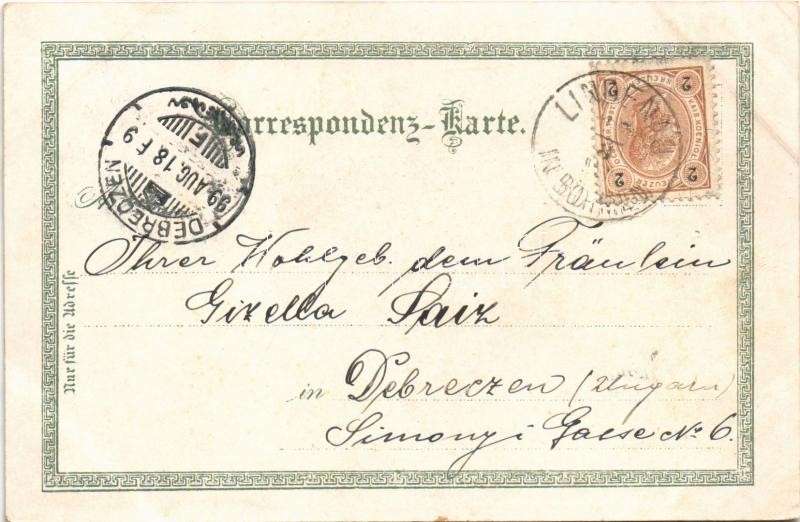 Correspondenz-Karte.
DEBRECZEN
99 AUG. 18. F 9
LINDENAU
IN BÖHMEN
2 2
KREUZER
2 2
Nur für die Adresse
Ihrer Wohlgeb. dem Fräulein
Gizella Saiz
in Debreczen (Ungarn)
Simonyi Gasse No 6.